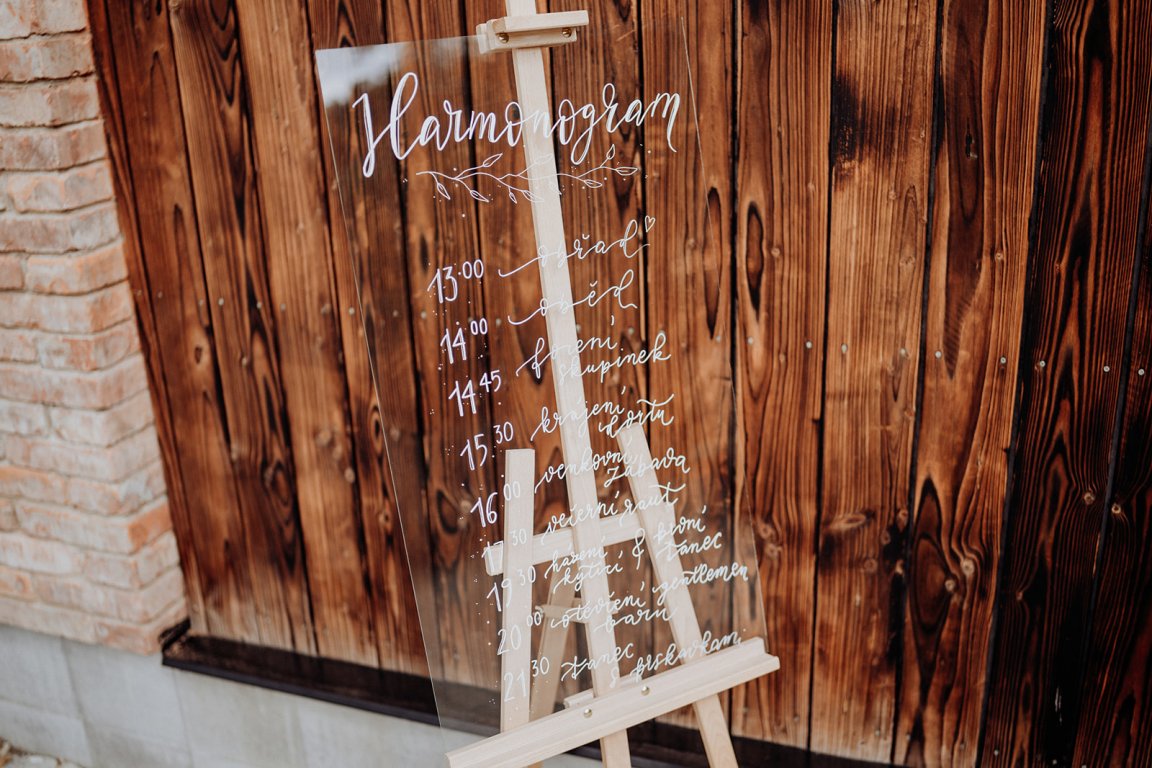 Harmonogram
13:00 obřad
14:00 oběd
14:45 focení
skupinek
15:30 krájení
dortu
16:00 venkovní
zábava
17:30 večerní raut
19:30 házení & první
kyticí tanec
20:00 otevření gentlemen
baru
21:30 tanec
s prskavkami